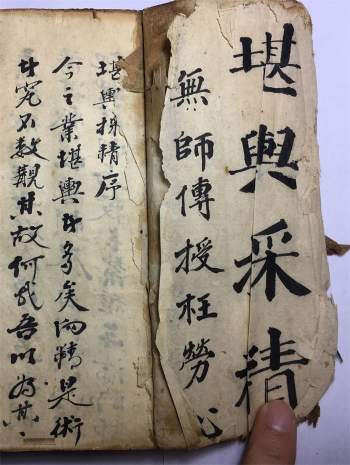 堪輿采精
無師傳授枉勞心
堪輿採精序
今之業堪輿者多矣向精是術
者究不數觀其故何哉吾以為其